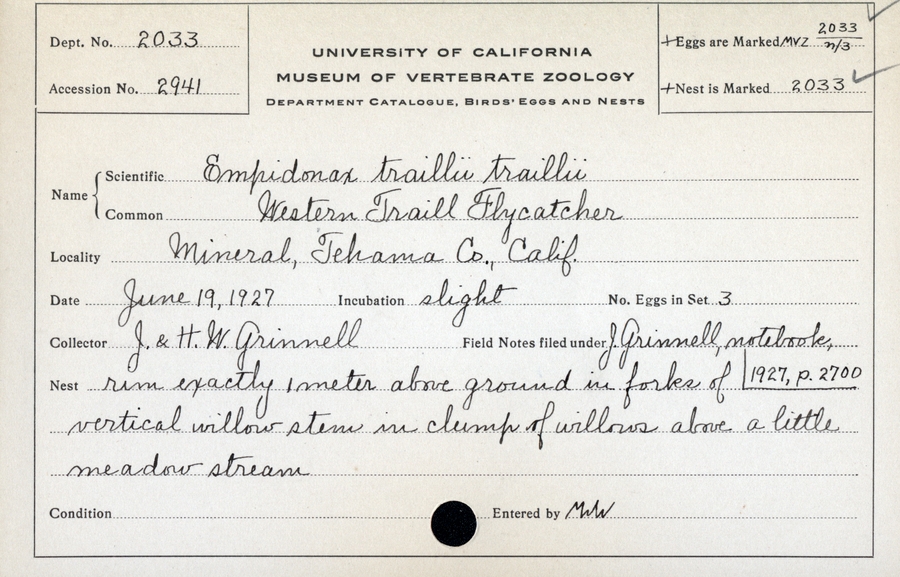 Dept. No. 2033
Accession No. 2941
UNIVERSITY OF CALIFORNIA
MUSEUM OF VERTEBRATE ZOOLOGY
DEPARTMENT CATALOGUE, BIRDS' EGGS AND NESTS
Eggs are Marked MVZ 2033 n/3
Nest is Marked 2033
Name Scientific Empidonax traillii traillii
Common Western Traill Flycatcher
Locality Mineral, Tehama Co., Calif.
Date June 19, 1927 Incubation slight No. Eggs in Set 3
Collector J. & H. W. Grinnell Field Notes filed under J. Grinnell, notebook,
Nest rim exactly 1 meter above ground in forks of 1927, p. 2700
vertical willow stem in clump of willows above a little
meadow stream
Condition Entered by